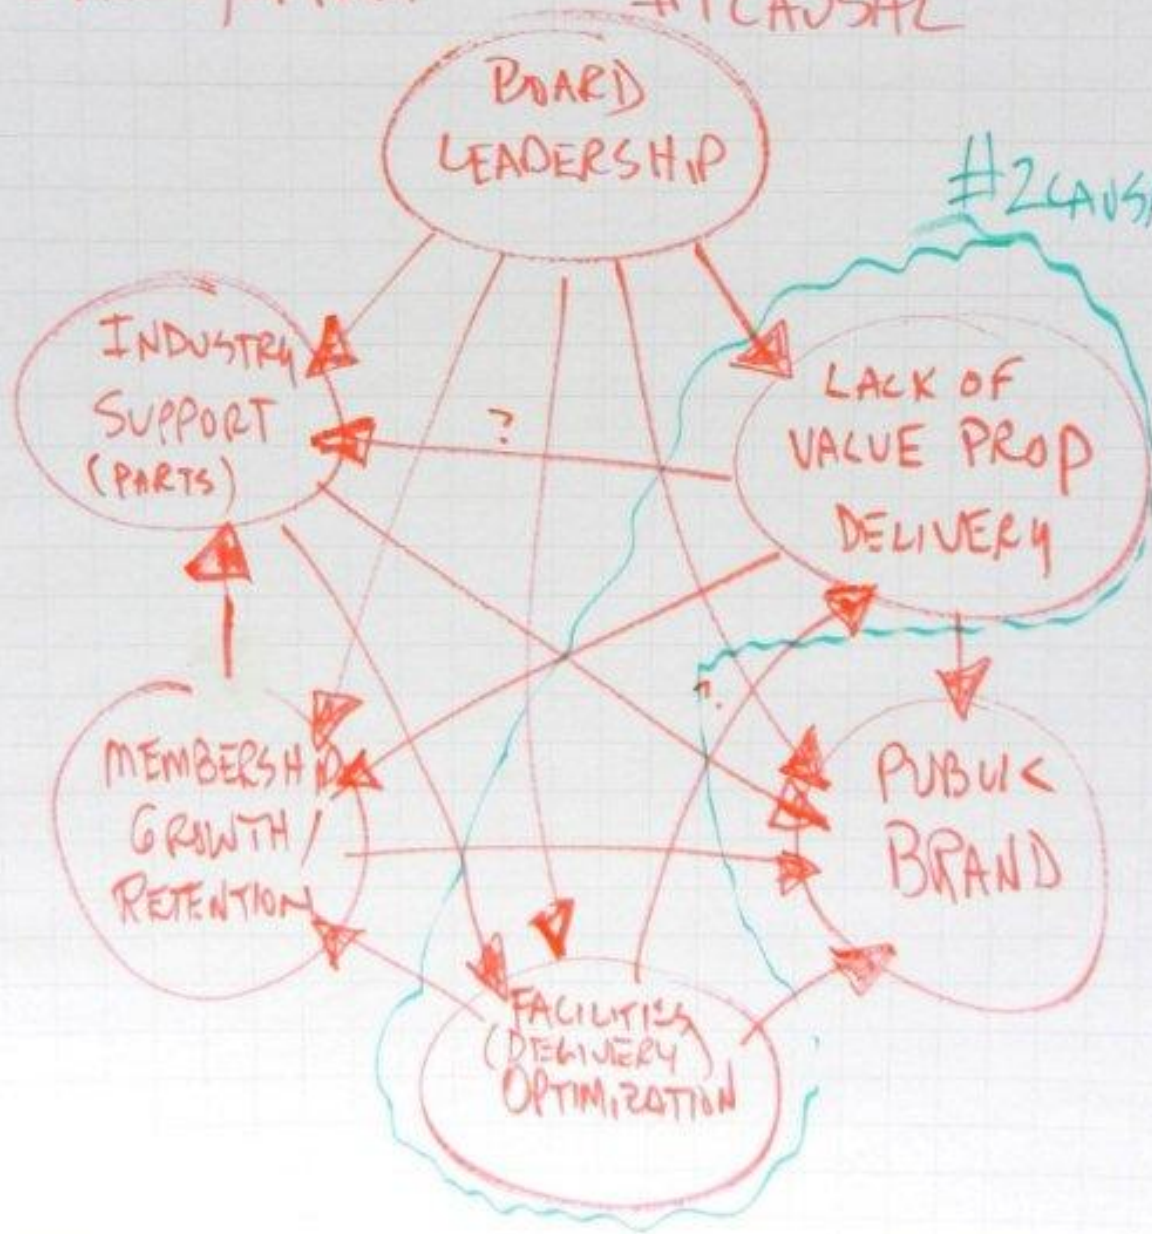 #1 CAUSAL
BOARD
LEADERSHIP
#2 CAUSA
INDUSTRY
SUPPORT
(PARTS)
?
LACK OF
VALUE PROP
DELIVERY
?
MEMBERSHIP
GROWTH/
RETENTION
PUBLIC
BRAND
FACILITIES
(DELIVERY)
OPTIMIZATION